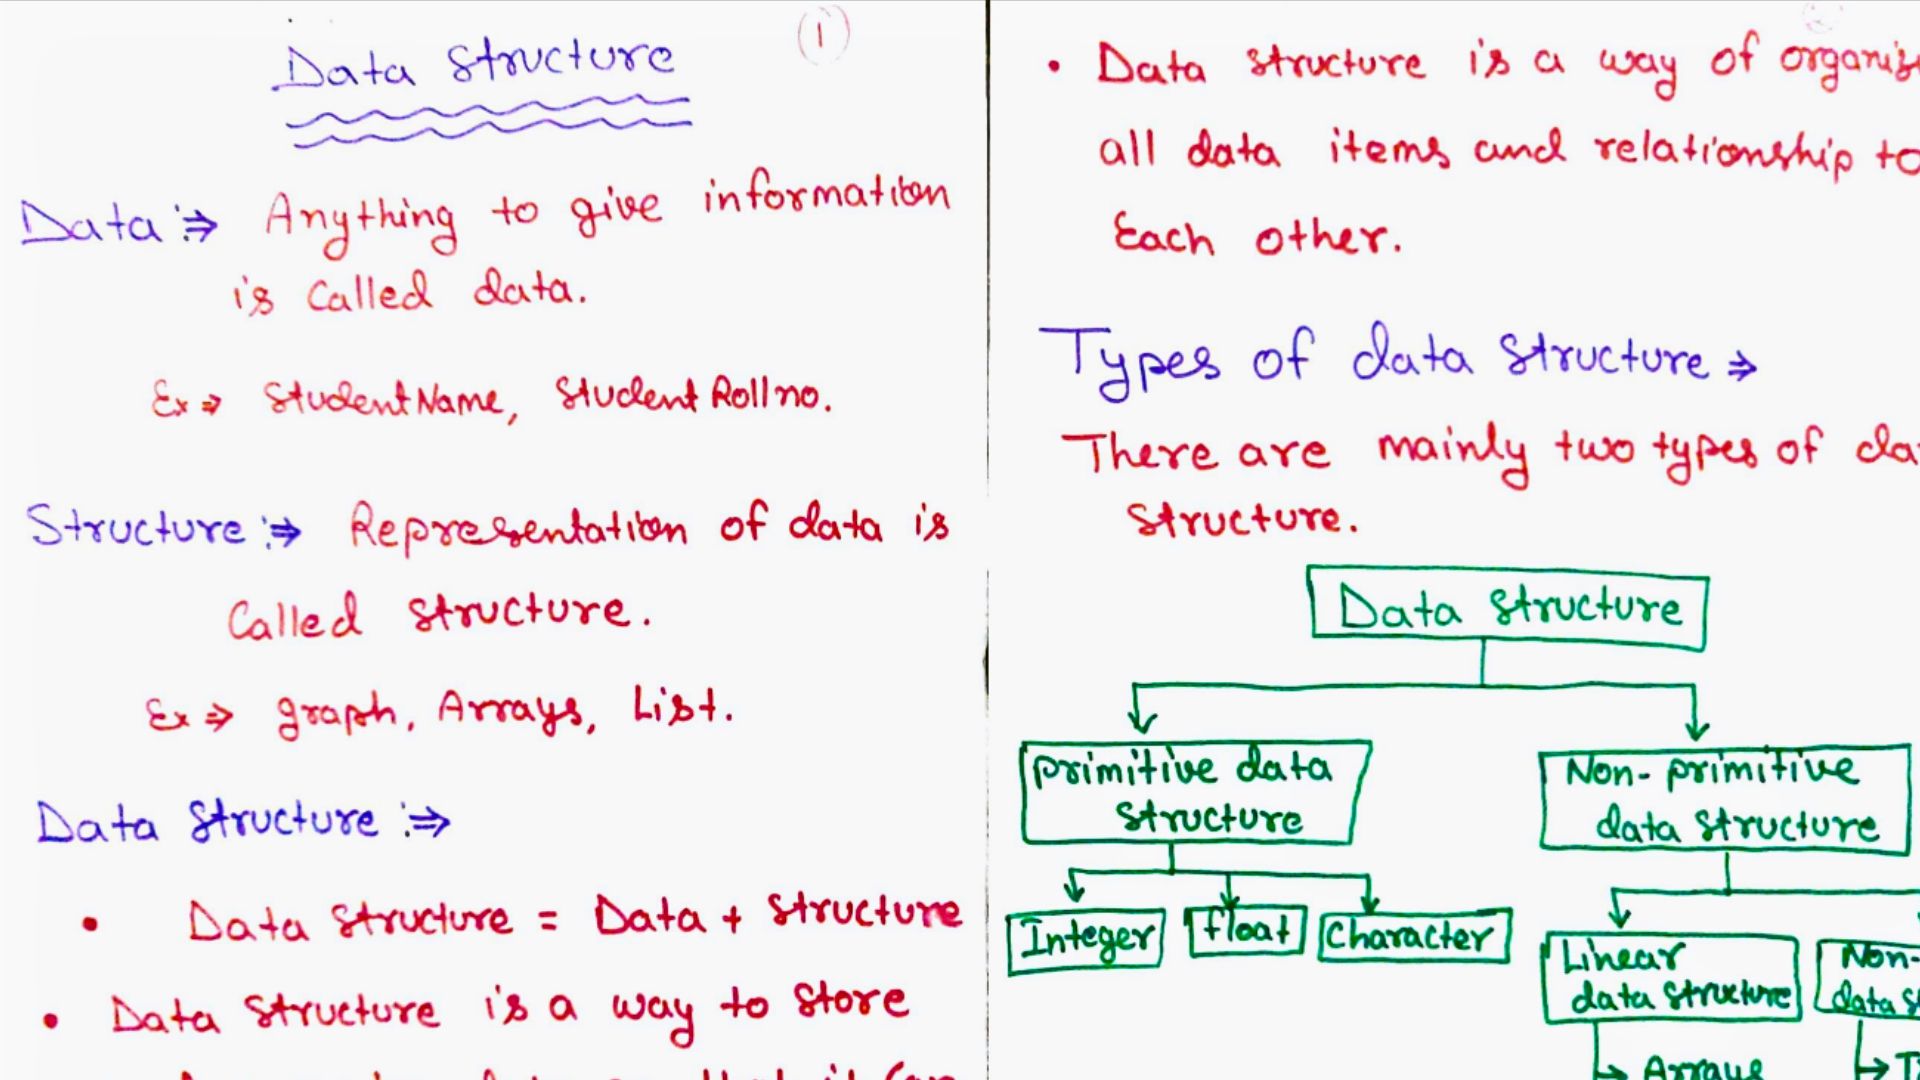 Data Structure
1
Data :⇒ Anything to give information
is called data.
Ex ⇒ StudentName, Student Rollno.
Structure :⇒ Representation of data is
Called structure.
Ex ⇒ graph, Arrays, List.
Data Structure :⇒
• Data structure = Data + structure
• Data structure is a way to store
• Data structure is a way of
all data items and relationship to
Each other.
Types of data structure ⇒
There are mainly two types of
structure.
Data structure
primitive data
structure
Non-primitive
data structure
Integer
float
Character
Linear
data structure
Non-
data
Arrays